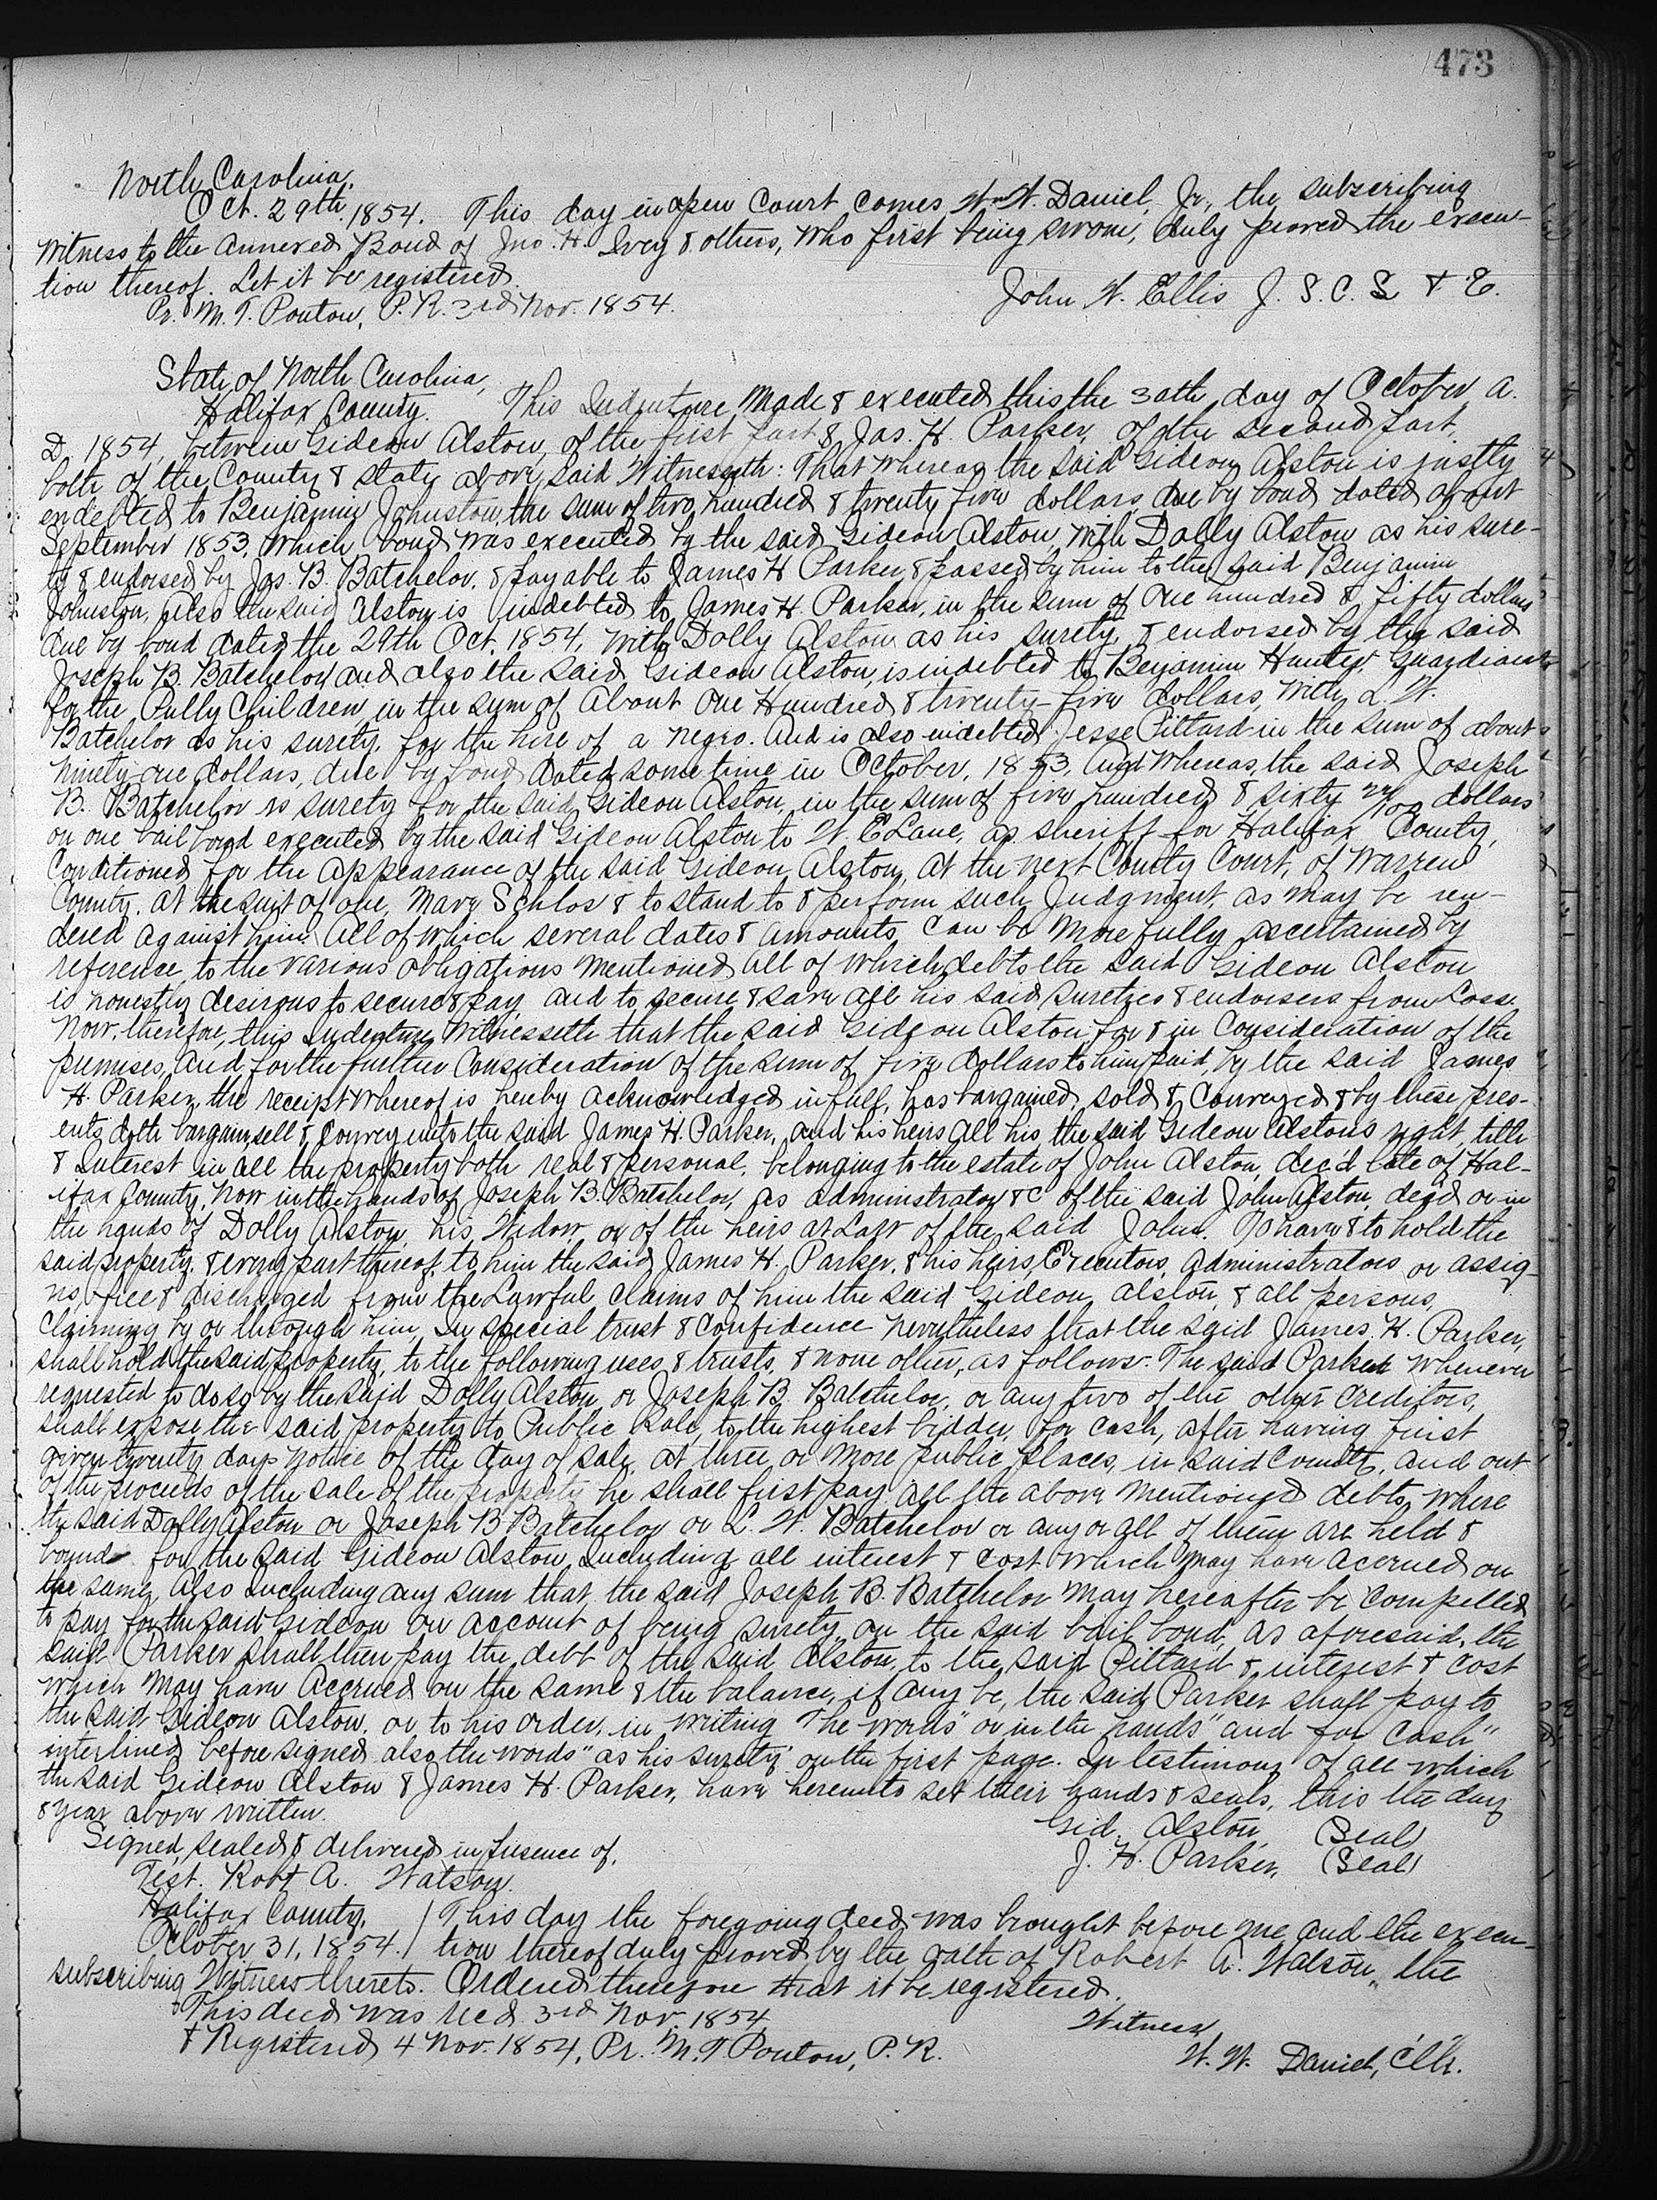 473
North Carolina.
Oct. 29th. 1854. This day in open Court comes W. W. Daniel, Jr., the subscribing
witness to the annexed Bond of Jno. H. Ivey & others, who first being sworn, duly proved the execu-
tion thereof. Let it be registered.
John W. Ellis J. S. C. L & E.
Pr. M. T. Ponton, P. R. 3rd Nov. 1854.
State of North Carolina,
Halifax County. This Indenture made & executed this the 30th day of October A.
D. 1854, between Gideon Alston, of the first part & Jas. H. Parker, of the second part,
both of the County & state above said Witnesseth: That whereas the said Gideon Alston is justly
endebted to Benjamin Johnston, the sum of two hundred & twenty five dollars, due by bond dated about
September 1853, which bond was executed by the said Gideon Alston, with Dolly Alston as his sure-
ty & endorsed by Jos. B. Batchelor, & payable to James H Parker & passed by him to the said Benjamin
Johnston, Also the said Alston is indebted to James H. Parker, in the sum of One hundred & fifty dollars
due by bond dated the 29th Oct. 1854, with Dolly Alston as his surety, & endorsed by the said
Joseph B. Batchelor, and also the said Gideon Alston, is indebted to Benjamin Hunter, Guardian
for the Pully Children, in the sum of About One Hundred & twenty-five dollars, with L. W.
Batchelor as his surety, for the hire of a negro. And is also indebted Jesse Pittard in the sum of about
ninety-one dollars, due by bond dated some time in October, 1853, And Whereas, the said Joseph
B. Batchelor is surety for the said Gideon Alston, in the sum of five hundred & sixty /100 dollars
on one bail bond executed by the said Gideon Alston to W. E Lane, as sheriff for Halifax County,
Conditioned for the appearance of the said Gideon Alston, at the next County Court, of Warren
County, at the suit of one, Marx Schlos & to stand to & perform such Judgment, as may be ren-
dered against him. All of which several dates & amounts, can be more fully ascertained by
reference, to the various obligations mentioned all of which debts the said Gideon Alston
is honestly desirous to secure & pay, and to secure & save all his said suretzes & endorsers from loss.
Now, therefore, this Indenture Witnesseth that the said Gideon Alston, for & in Consideration of the
premises, and for the further Consideration of the sum of five dollars to him paid, by the said James
H. Parker, the receipt whereof is hereby acknowledged in full, has bargained, sold & Conveyed & by these pres-
ents doth bargain, sell & Convey unto the said James H. Parker, and his heirs all his, the said Gideon Alstons right, title
& Interest in all the property both real & personal, belonging to the estate of John Alston, dec'd late of Hal-
ifax County, now in the hands of Joseph B. Batchelor, as administrator &c of the said John Alston, decd or in
the hands of Dolly Alston, his Widow or of the heirs at Law of the said John. To have & to hold the
said property, & every part thereof, to him the said James H. Parker, & his heirs, Executors, administrators or assig-
ns, free & discharged from the Lawful claims of him the said Gideon Alston, & all persons,
Claiming by or through him, In special trust & confidence nevertheless that the said James. H. Parker,
shall hold the said property, to the following uses & trusts, & none other, as follows: The said Parker whenever
requested to do so by the said Dolly Alston, or Joseph B. Batchelor, or any two of the other creditors,
shall expose the said property to Public Sale, to the highest bidder, for cash, after having first
given twenty days notice of the day of sale, at three or more public places, in said County, and out
of the proceeds of the sale of the property he shall first pay all the above mentioned debts, where
the said Dolly Alston or Joseph B Batchelor or L. W. Batchelor or any or all of them are held &
bound for the said Gideon Alston, Including all interest & cost which may have accrued on
the same, Also Including any sum that the said Joseph B. Batchelor may hereafter be compelled
to pay for the said Gideon on account of being surety on the said bail bond, as aforesaid, the
said Parker shall then pay the debt of the said Alston, to the said Pittard & interest & cost
which may have Accrued on the same & the balance, if any be, the said Parker shall pay to
the said Gideon Alston, or to his order, in writing The words "or in the hands" and for cash"
interlined before signed also the words "as his surety" on the first page. In testimony of all which
the said Gideon Alston & James H. Parker, have hereunto set their hands & seals, this the day
& year above written.
Gid. Alston, (Seal)
Signed, sealed & delivered in presence of,
J. H. Parker, (Seal)
Test. Robt A. Watson.
Halifax County, This day the foregoing deed was brought before me and the execu-
October 31, 1854. tion thereof duly proved by the oath of Robert A. Watson, the
subscribing Witness thereto. Ordered therefore that it be registered.
This deed was recd 3rd Nov. 1854,
Witness
& Registered 4 Nov. 1854, Pr. M. T Ponton, P. R.
W. W. Daniel, Clk.